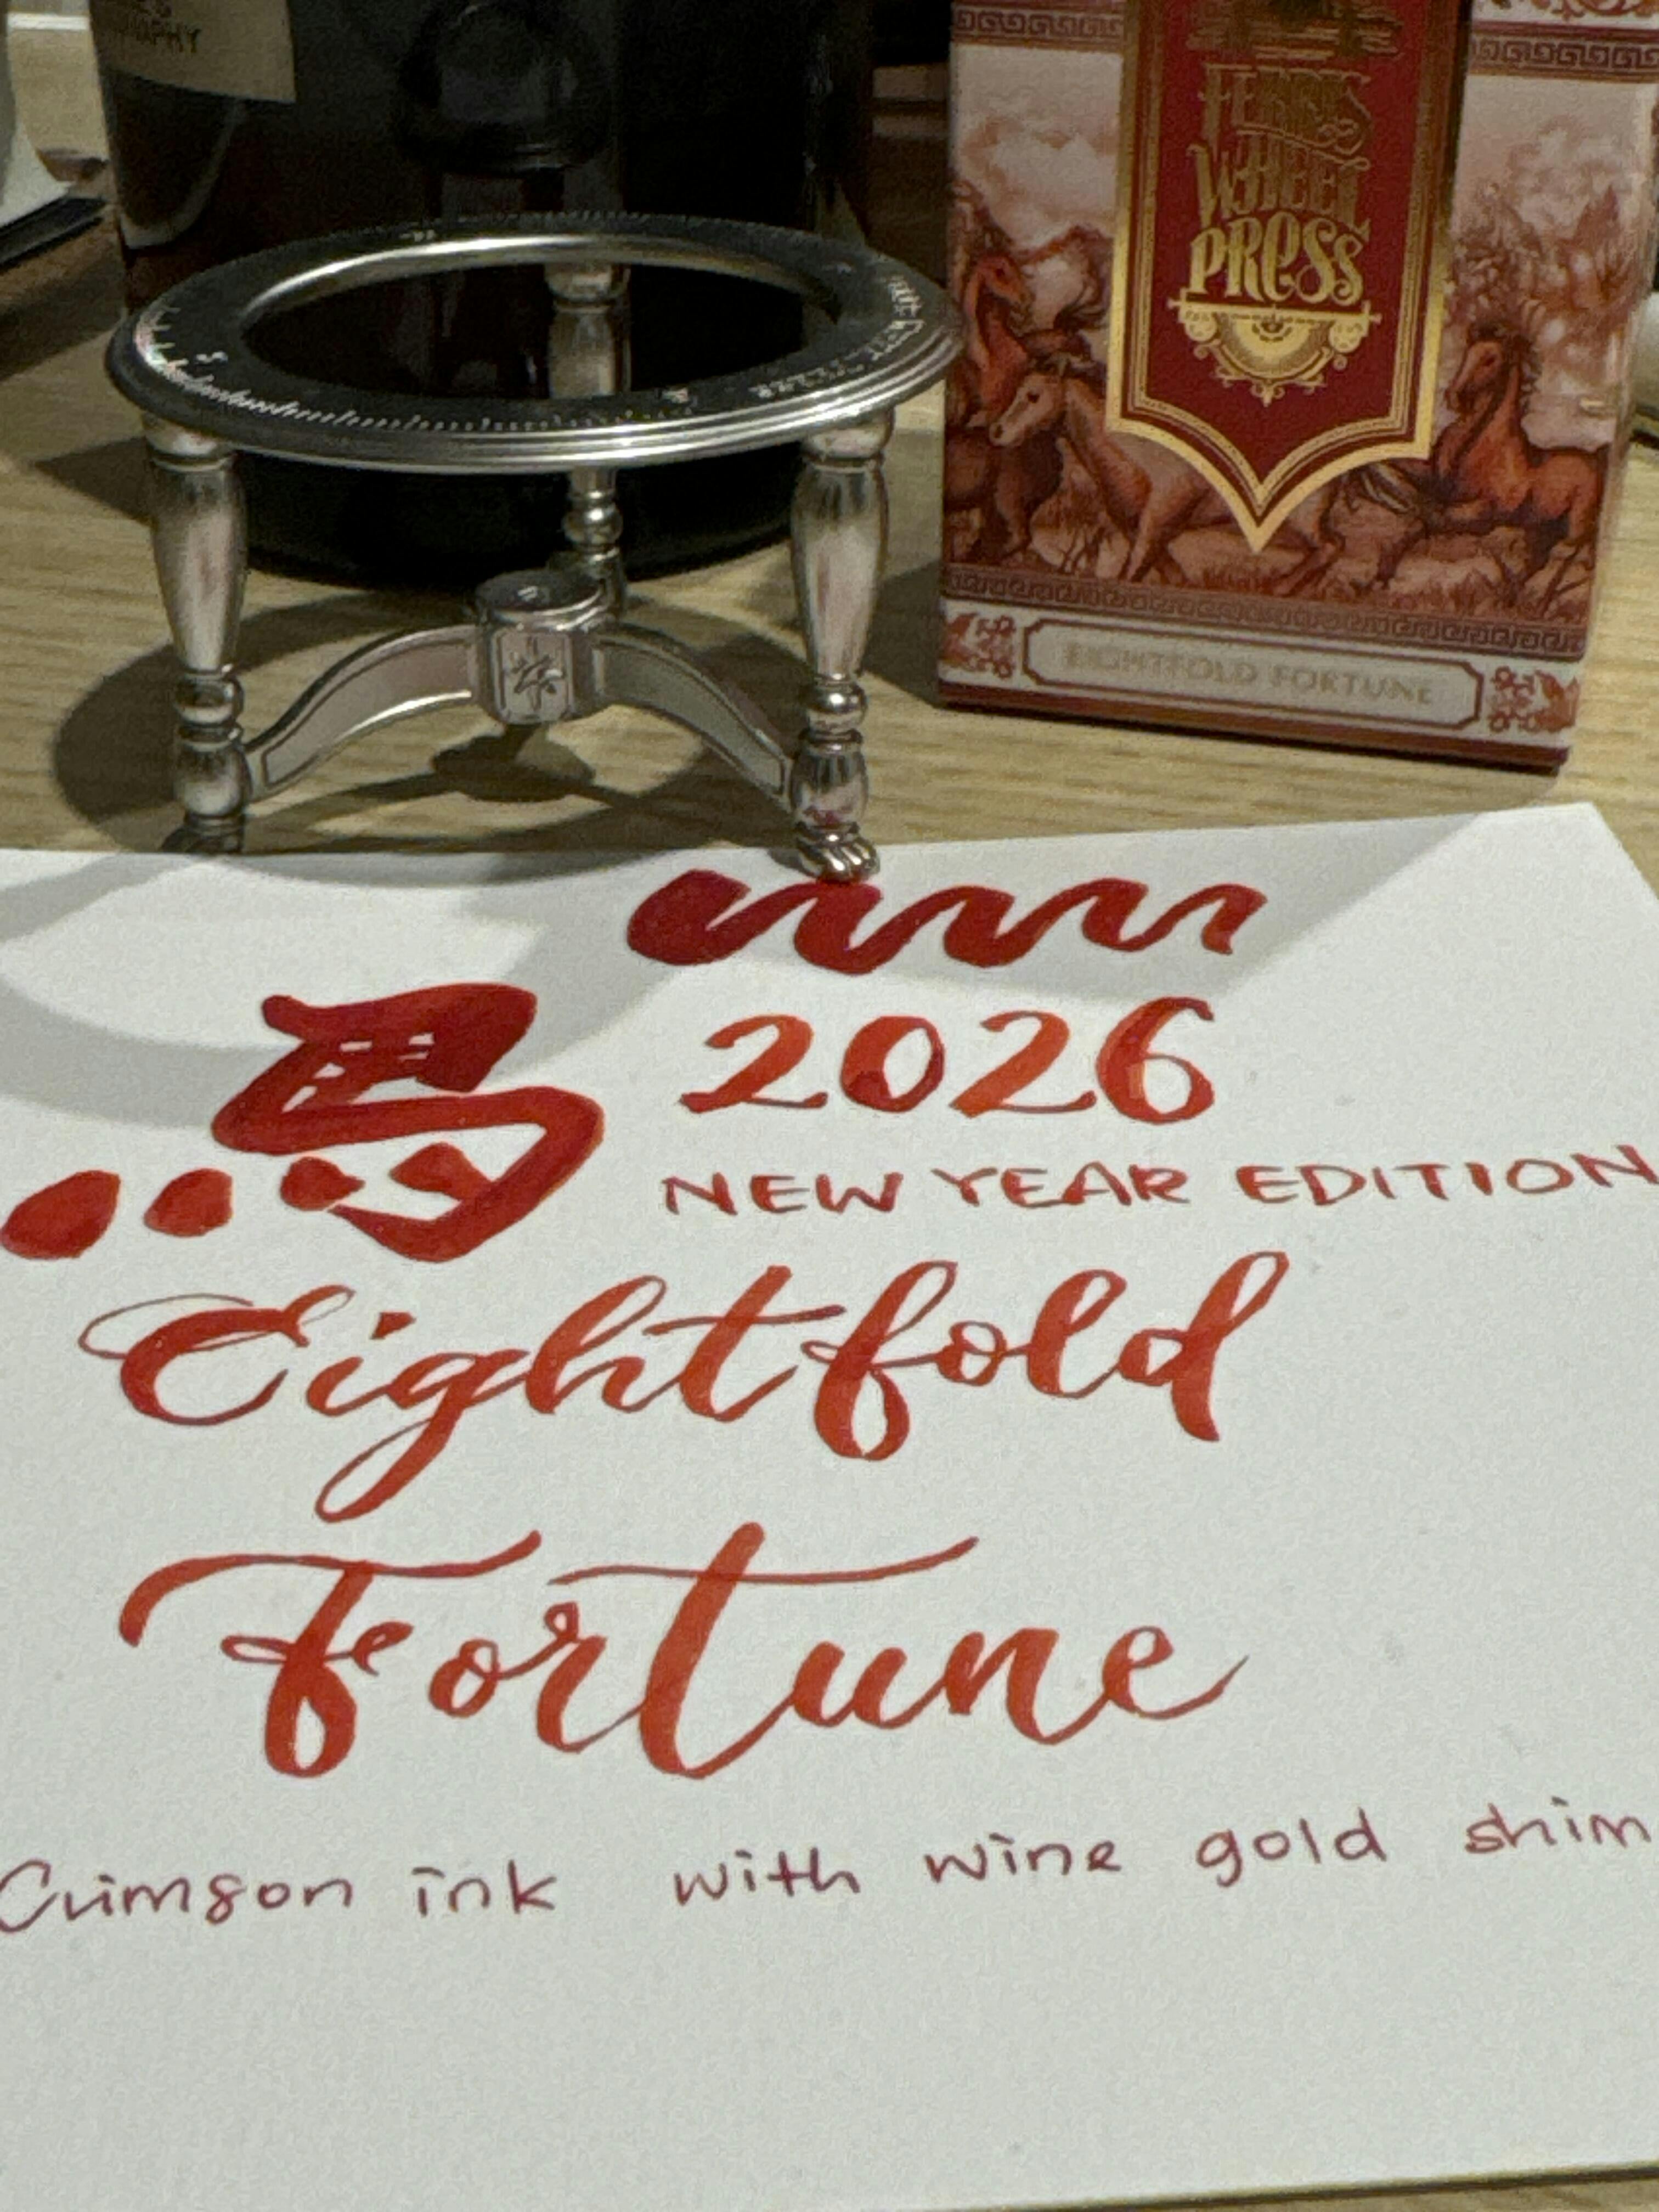 FERRIS
WHEEL
PRESS
EIGHTFOLD FORTUNE
馬
2026
NEW YEAR EDITION
Eightfold
Fortune
Crimson ink with wine gold shim